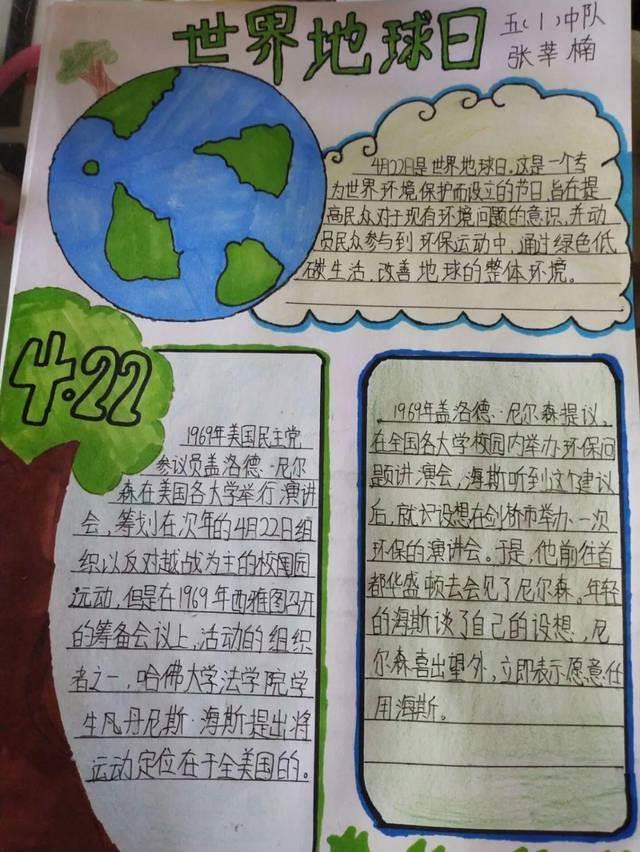 世界地球日
五(1)中队
张莘楠
4月22日是世界地球日,这是一个专
为世界环境保护而设立的节日,旨在提
高民众对于现有环境问题的意识,并动
员民众参与到环保运动中,通过绿色低
碳生活,改善地球的整体环境。
4·22
1969年美国民主党
参议员盖洛德·尼尔
森在美国各大学举行演讲
会,筹划在次年的4月22日组
织以反对越战为主的校园园
运动,但是在1969年西雅图召开
的筹备会议上,活动的组织
者之一,哈佛大学法学院学
生凡丹尼斯·海斯提出将
运动定位在于全美国的。
1969年盖洛德·尼尔森提议,
在全国各大学校园内举办环保问
题讲演会,海斯听到这个建议
后,就设想在剑桥市举办一次
环保的演讲会。于是,他前往首
都华盛顿去会见了尼尔森。年轻
的海斯谈了自己的设想,尼
尔森喜出望外,立即表示愿意任
用海斯。